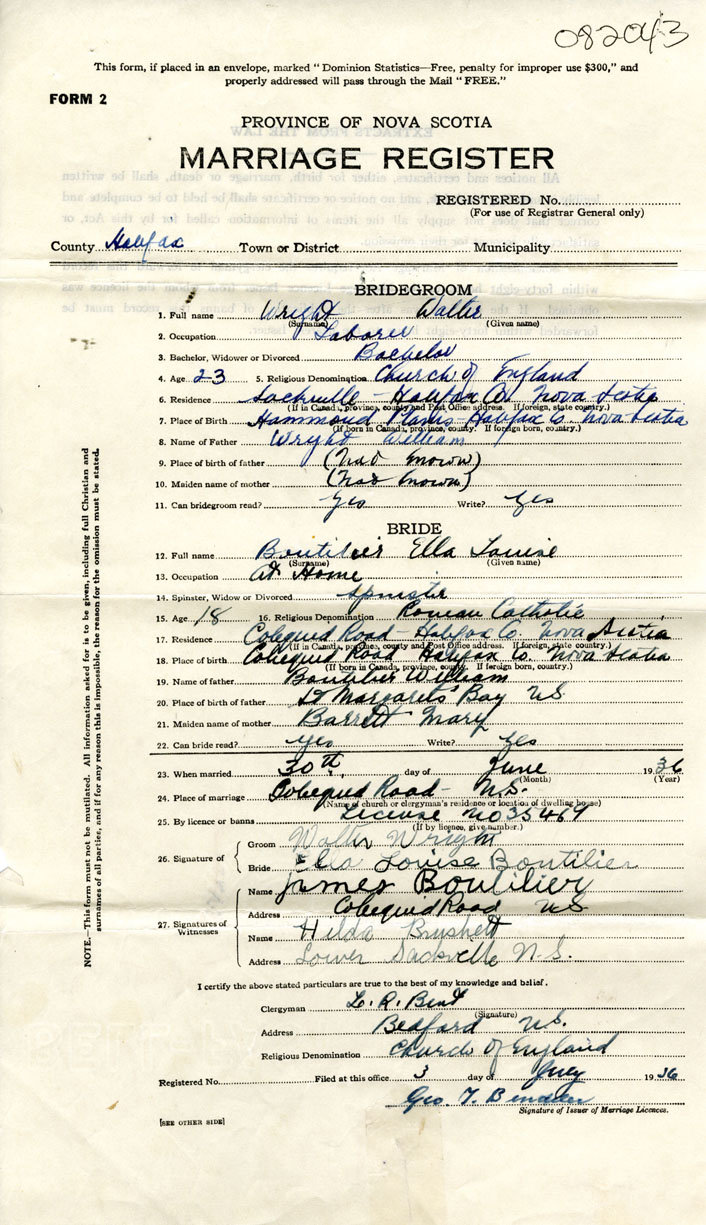 082043
This form, if placed in an envelope, marked "Dominion Statistics—Free, penalty for improper use $300," and
properly addressed will pass through the Mail "FREE."
FORM 2
PROVINCE OF NOVA SCOTIA
MARRIAGE REGISTER
REGISTERED No.
(For use of Registrar General only)
County Halifax Town or District Municipality
BRIDEGROOM
1. Full name Wright Walter
(Surname) (Given name)
2. Occupation Laborer
3. Bachelor, Widower or Divorced Bachelor
4. Age 23 5. Religious Denomination Church of England
6. Residence Sackville - Halifax Co. Nova Scotia
(If in Canada, province, county and Post Office address. If foreign, state country.)
7. Place of Birth Hammond Plains Halifax Co. Nova Scotia
(If born in Canada, province, county. If foreign born, country.)
8. Name of Father Wright William
9. Place of birth of father (Not Known)
10. Maiden name of mother (Not Known)
11. Can bridegroom read? Yes Write? Yes
BRIDE
12. Full name Boutilier Ella Louise
(Surname) (Given name)
13. Occupation At Home
14. Spinster, Widow or Divorced Spinster
15. Age 18 16. Religious Denomination Roman Catholic
17. Residence Cobequid Road - Halifax Co. Nova Scotia
(If in Canada, province, county and Post Office address. If foreign, state country.)
18. Place of birth Cobequid Road Halifax Co Nova Scotia
(If born in Canada, province, county. If foreign born, country.)
19. Name of father Boutilier William
20. Place of birth of father St Margarets Bay N.S.
21. Maiden name of mother Barrett Mary
22. Can bride read? Yes Write? Yes
23. When married 30th day of June 1936
(Month) (Year)
24. Place of marriage Cobequid Road - N.S.
(Name of church or clergyman's residence or location of dwelling house)
25. By licence or banns License No 35469
(If by licence, give number.)
26. Signature of
Groom Walter Wright
Bride Ella Louise Boutilier
27. Signatures of Witnesses
Name James Boutilier
Address Cobequid Road N.S
Name Hilda Brushett
Address Lower Sackville N.S.
I certify the above stated particulars are true to the best of my knowledge and belief.
Clergyman L. R. Bent
(Signature)
Address Bedford N.S.
Religious Denomination Church of England
Registered No. Filed at this office 3 day of July 1936
Geo. T.
Signature of Issuer of Marriage Licences.
[SEE OTHER SIDE]
NOTE.—This form must not be mutilated. All information asked for is to be given, including full Christian and
surnames of all parties, and if for any reason this is impossible, the reason for the omission must be stated.